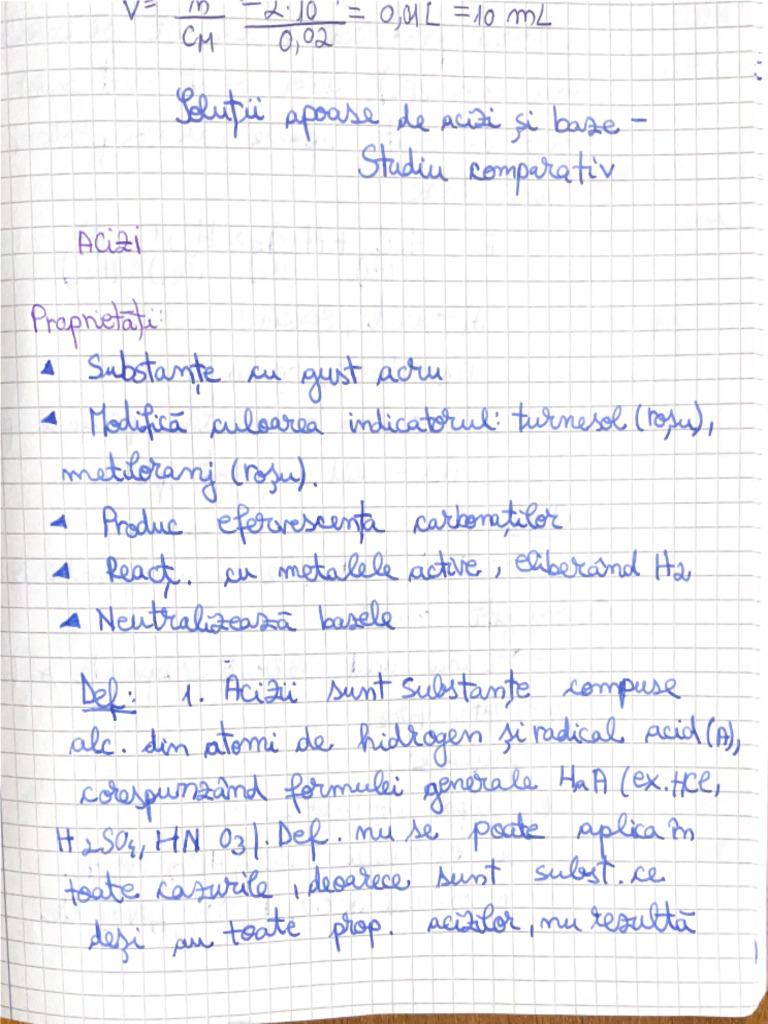 V= n/CM = 2·10/0,02 = 0,01L = 10 mL
Soluții apoase de acizi și baze –
Studiu comparativ
Acizi
Proprietăți:
Substanțe cu gust acru
Modifică culoarea indicatorul: turnesol (roșu),
metiloranj (roșu).
Produc efervescența carbonaților
React. cu metalele active, eliberând H2
Neutralizează bazele
Def: 1. Acizii sunt substanțe compuse
alc. din atomi de hidrogen și radical acid (A),
corespunzând formulei generale HaA (ex. HCl,
H2SO4, HNO3). Def. nu se poate aplica în
toate cazurile, deoarece sunt subst. ce
deși au toate prop. acizilor, nu rezultă